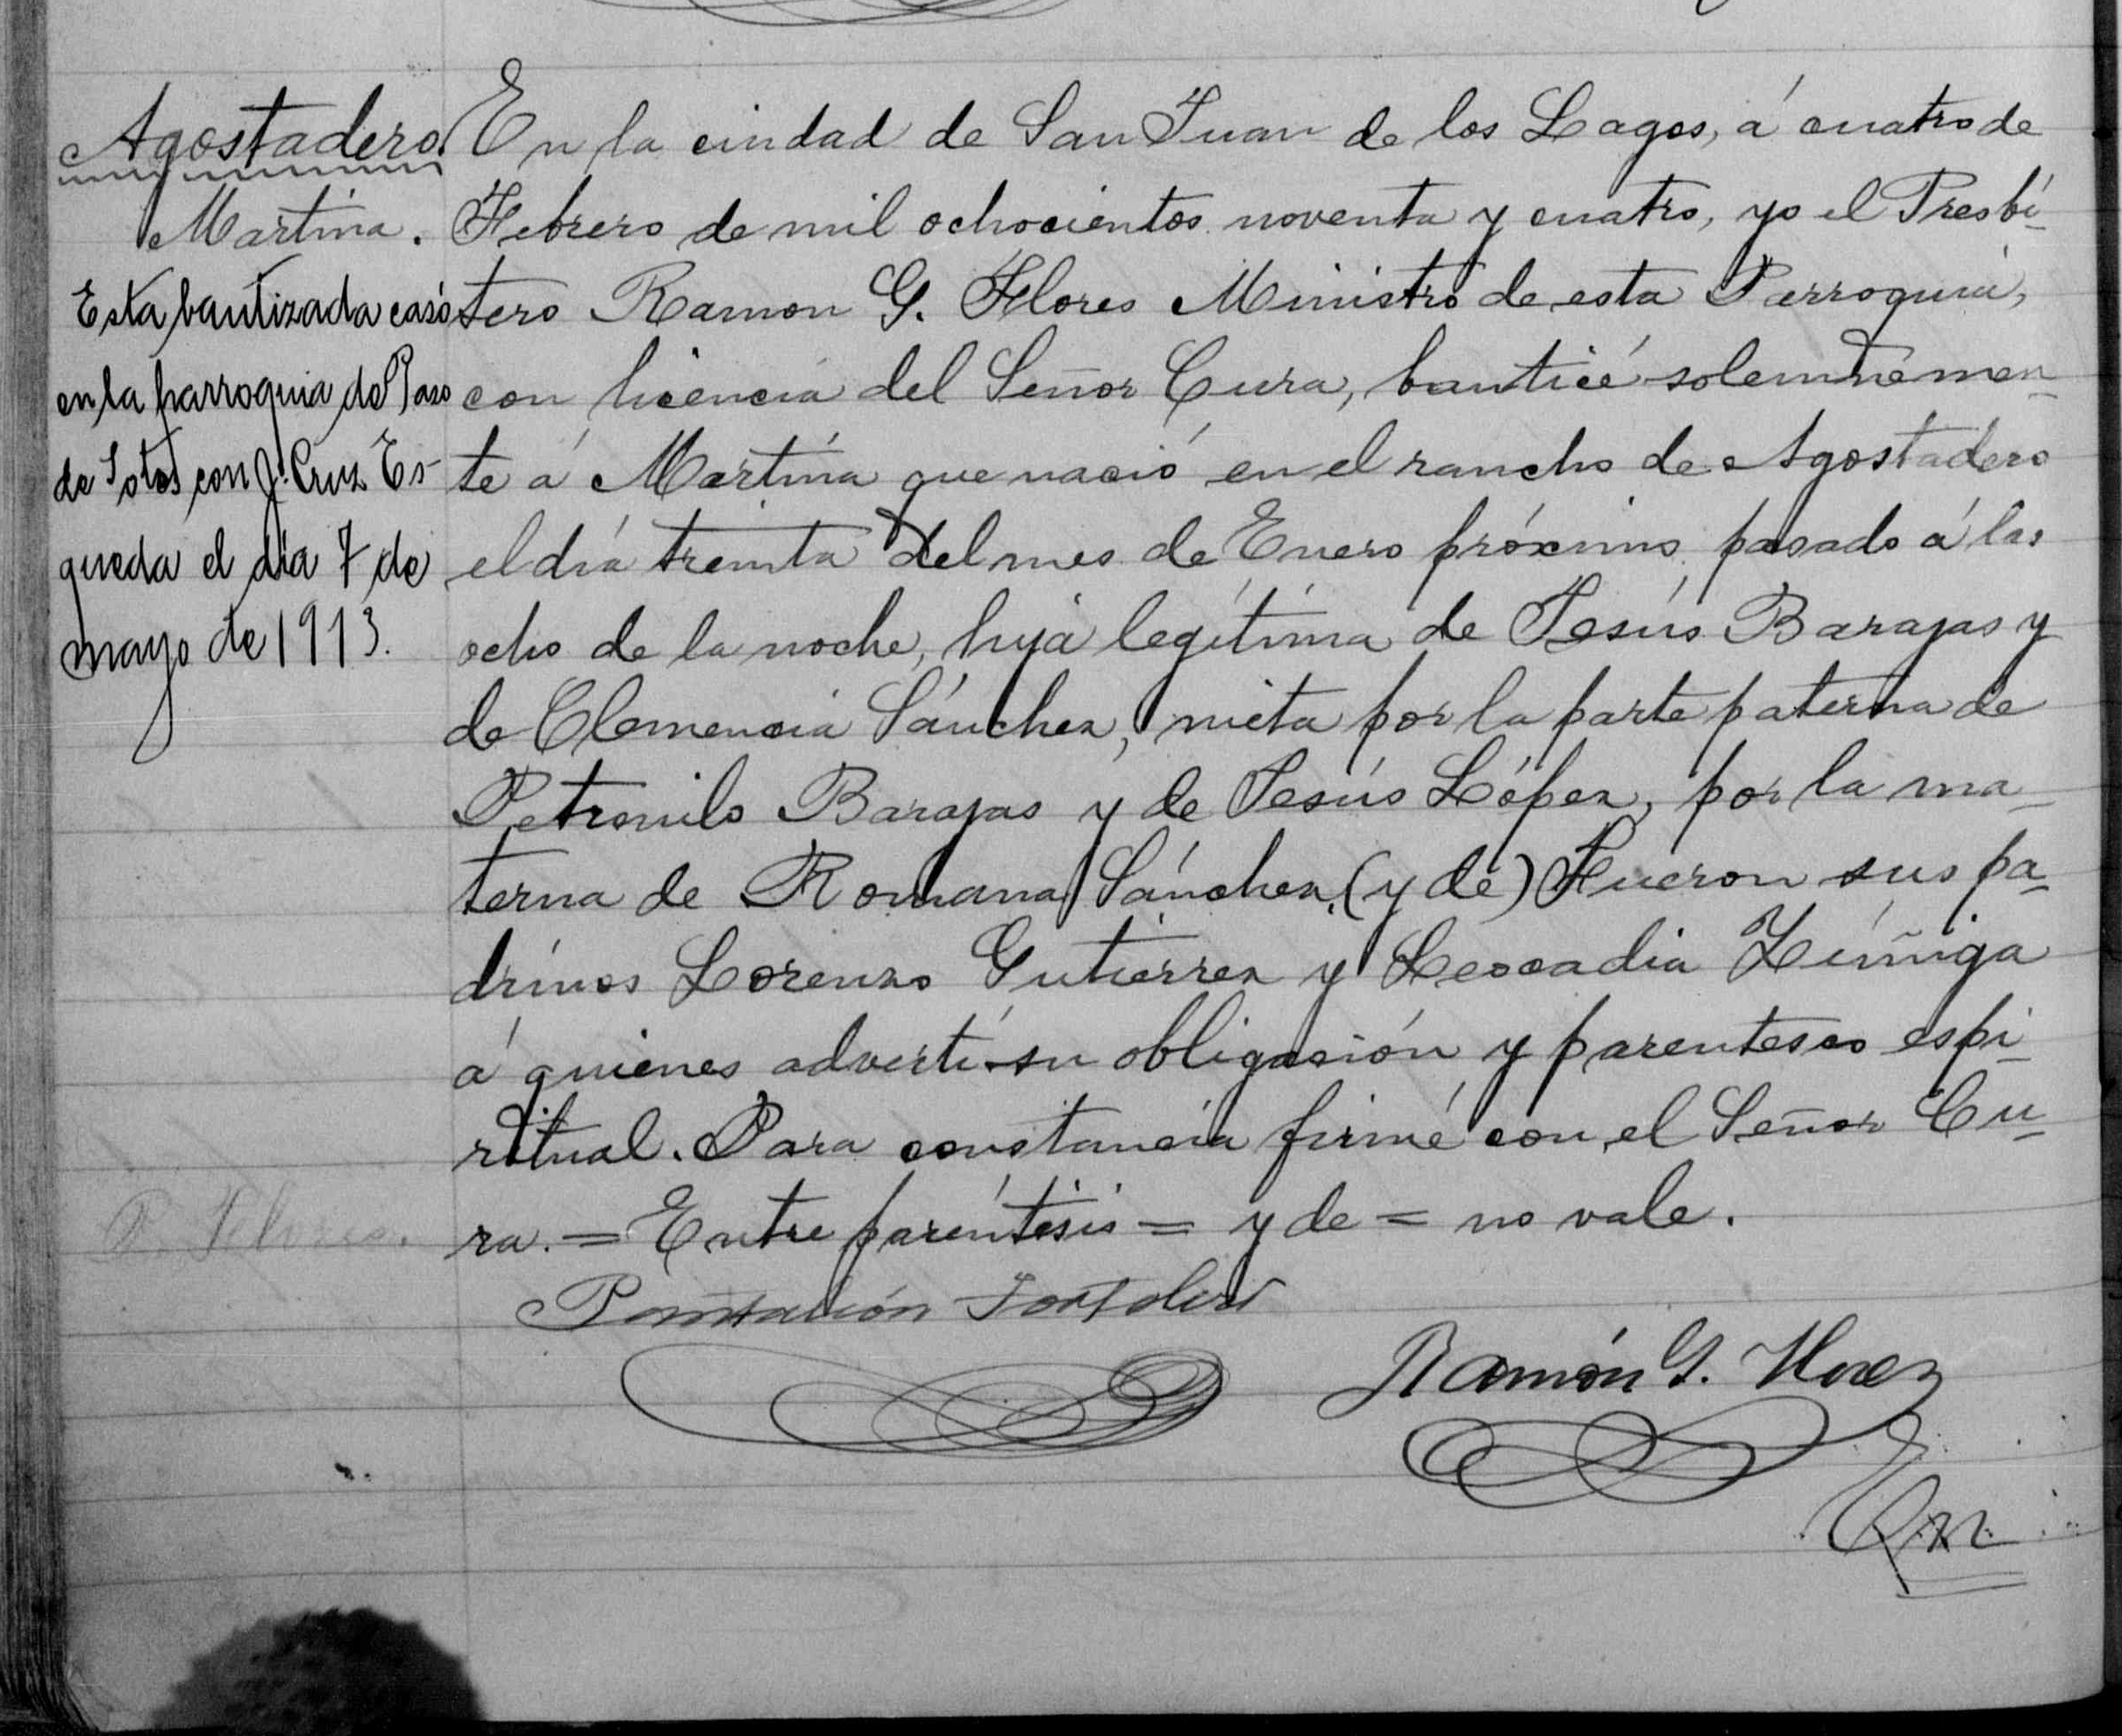 Agostadero.
Martina.
Esta bautizada casó
en la parroquia de Paso
de Sotos con J. Cruz Es-
queda el día 7 de
mayo de 1913.
En la ciudad de San Juan de los Lagos, á cuatro de
Febrero de mil ochocientos noventa y cuatro, yo el Presbí-
tero Ramon G. Flores Ministro de esta Parroquia,
con licencia del Señor Cura, bauticé solemnemen-
te á Martina que nació en el rancho de Agostadero
el día treinta del mes de Enero próximo pasado á las
ocho de la noche, hija legítima de Jesús Barajas y
de Clemencia Sánchez, nieta por la parte paterna de
Petronilo Barajas y de Jesús López, por la ma-
terna de Romana Sánchez. (y de) Fueron sus pa-
drinos Lorenzo Gutierrez y Leocadia Zúñiga
á quienes advertí su obligación y parentesco espi-
ritual. Para constancia firmé con el Señor Cu-
ra. = Entre paréntesis = y de = no vale.
P. Flores.
Pantaleón Tortolero
Ramón G. Flores